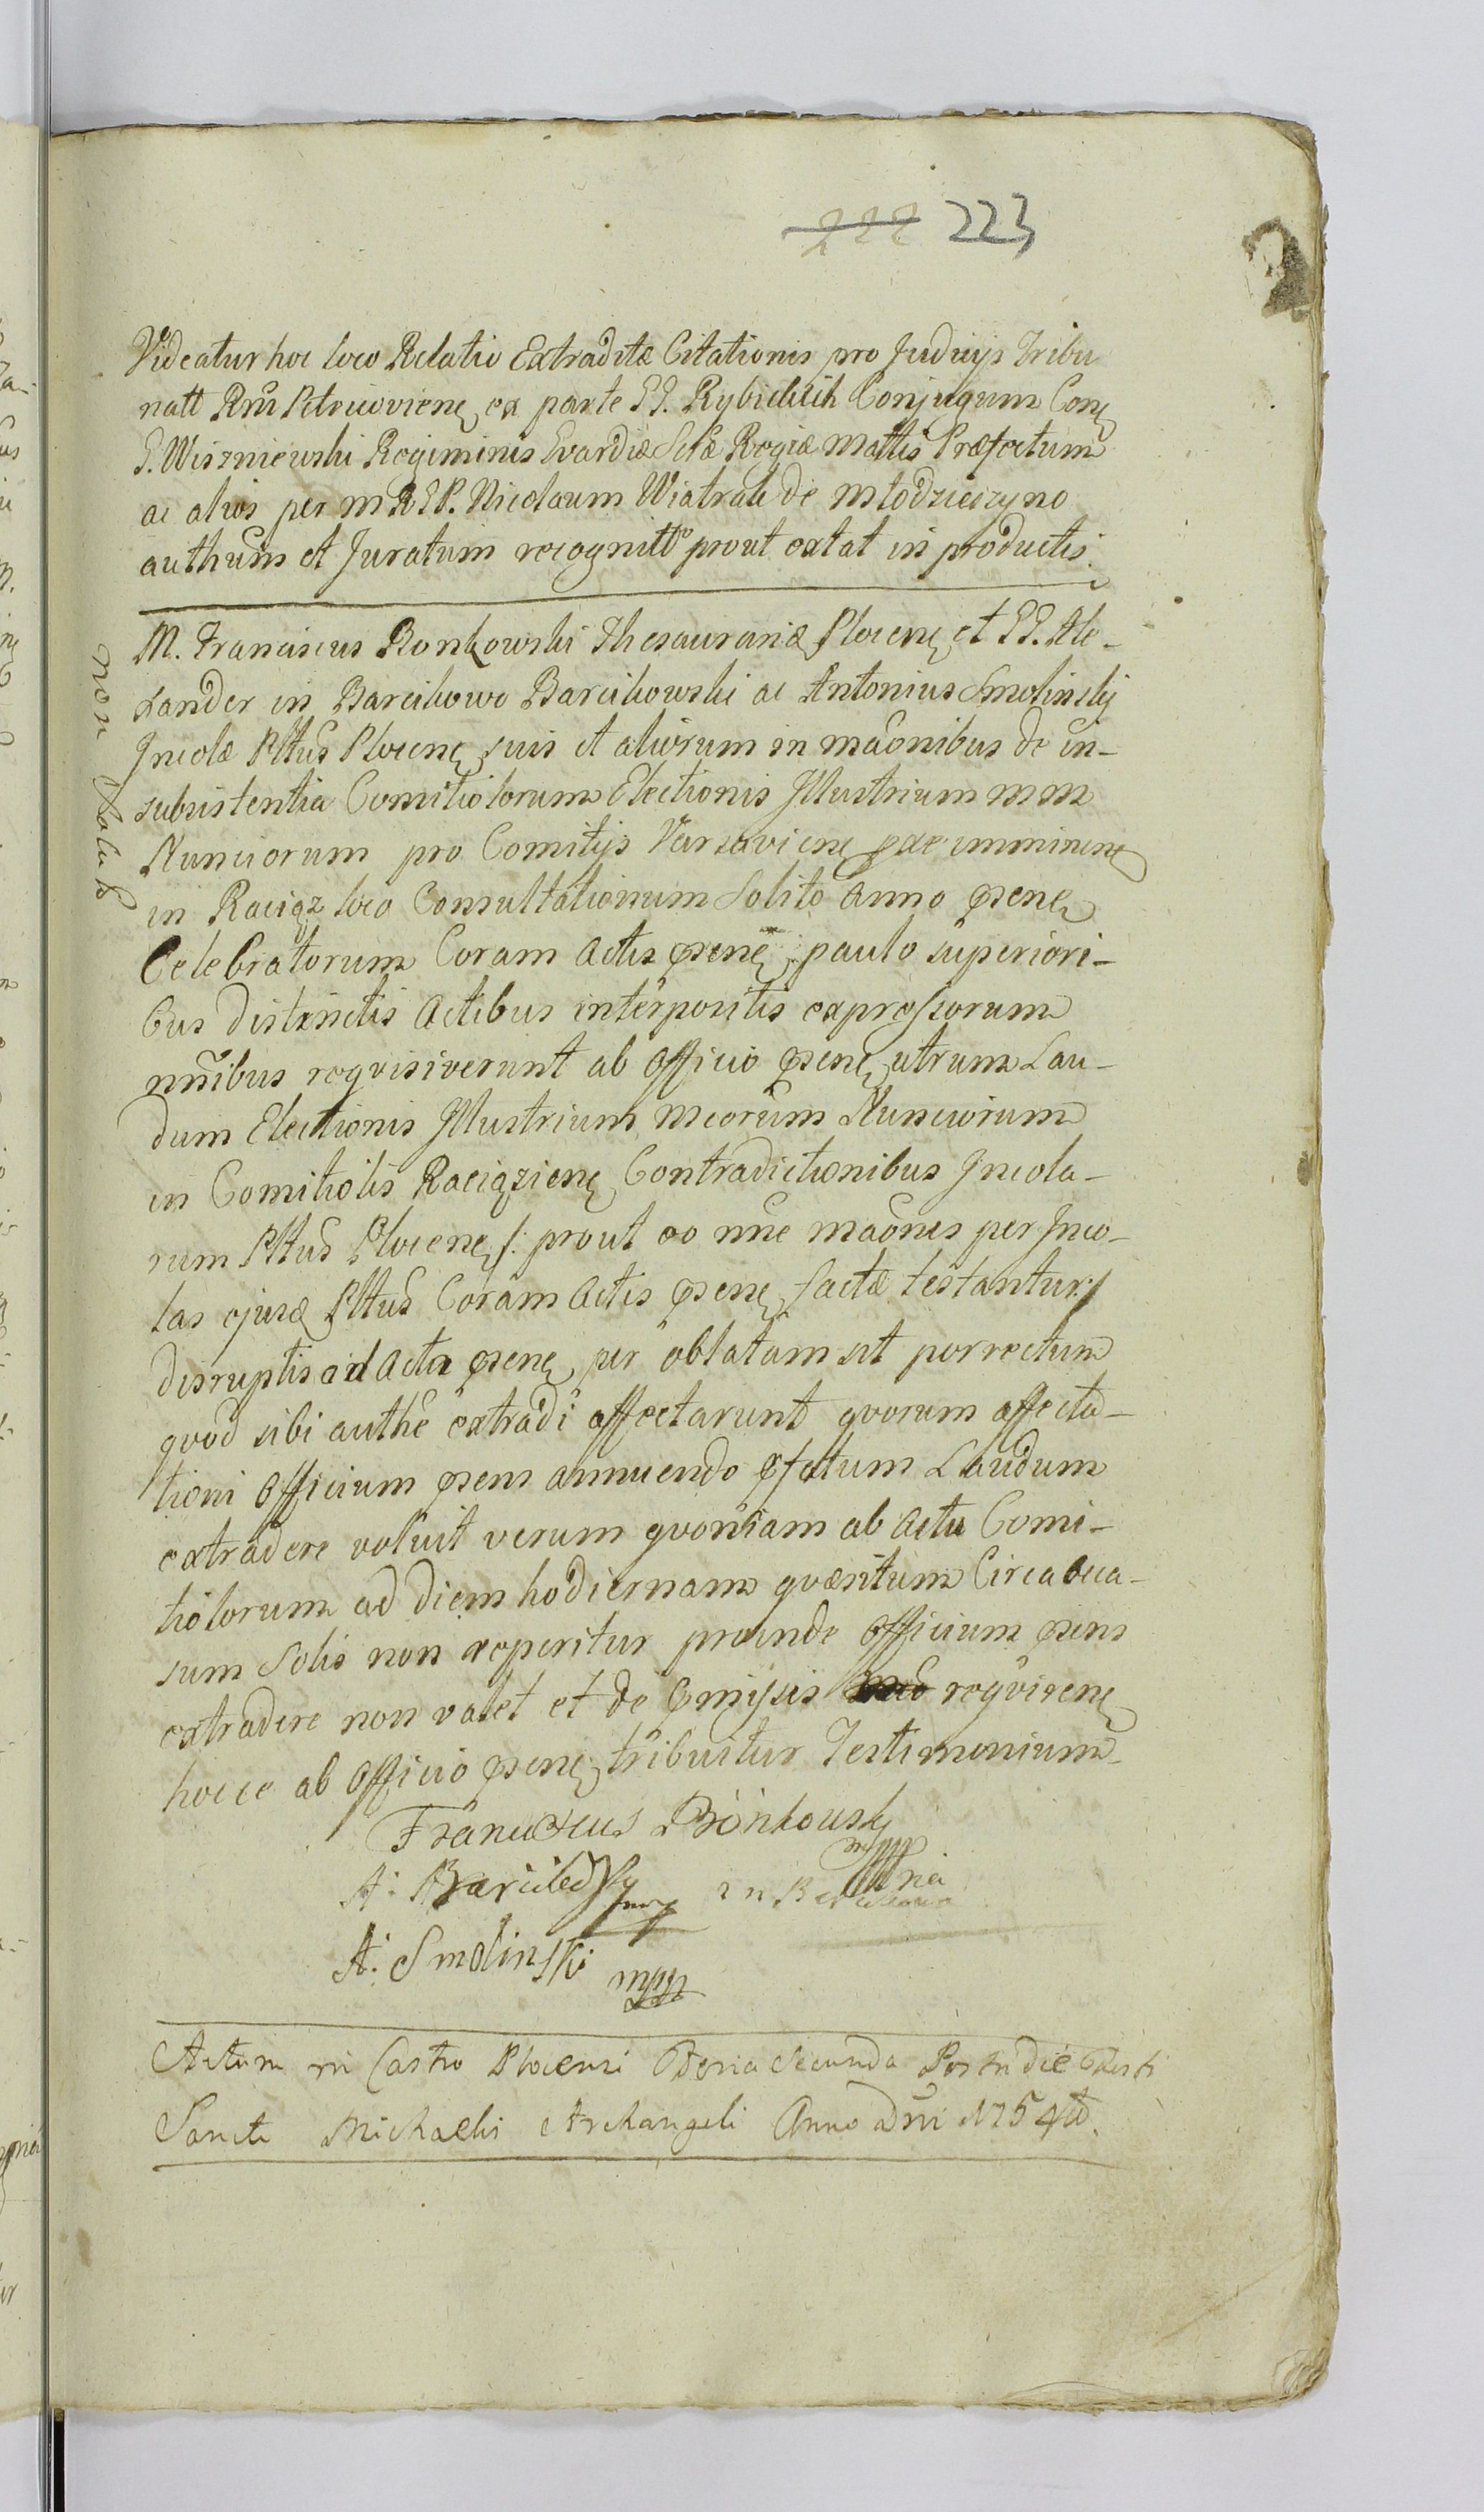 222 223
Videatur hoc loco Relatio Extraditæ Citationis pro Judicijs Tribu
natt Rni Petricoviens ex parte GG. Rybickich Conjugum Cons
G. Wiszniewski Regiminis Gvardiæ Sctæ Regiæ Mattis Præfectum
ac alios per MRGP. Nicolaum Wiatrak de Młodzieczyno
authum et Juratum recognitt prout extat in productis.
M. Franciscus Bonkowski Thesaurariæ Plocens et GG. Ale-
xander in Barcikowo Barcikowski ac Antonius Smolinskij
Incolæ Pltus Plocens suis et aliorum in maonibus de in-
subsistentia Comitiolorum Electionis Jllustrium MM
Nunciorum pro Comitijs Varsaviens pxe imminens
in Raciąz loco Consultationum Solito Anno psens
Celebratorum Coram Actis psens paulo superiori-
bus distinctis Actibus interpositis expressorum
nnibus reqvisiverunt ab Officio psens utrum Lau-
dum Electionis Jllustrium Meorum Nunciorum
in Comitiolis Raciąziens Contradictionibus Jncola-
rum Pltus Plocens /: prout eo nne maones per Jnco-
las ejusd Pltus Coram Actis psens factæ testantur :/
disruptis ad Acta psens per oblatam sit porrectum
qvod sibi authe extradi affectarunt qvorum affecta-
tioni Officium psens annuendo pfatum Laudum
extradere voluit verum qvoniam ab Actu Comi-
tiolorum ad diem hodiernam qvæsitum Circa occa-
sum Solis non reperitur proinde Officium psens
extradere non valet et de pmissis reqvirens
hocce ab Officio psens tribuitur Testimonium
non solut
Franciscus Bonkowsky
mppria
A: Barcikowsky mp in Barcikowo
A: Smolinski mpp
Actum in Castro Plocensi Feria Secunda Postridie Festi
Sancti Michaelis Archangeli Anno Dni 1754to.